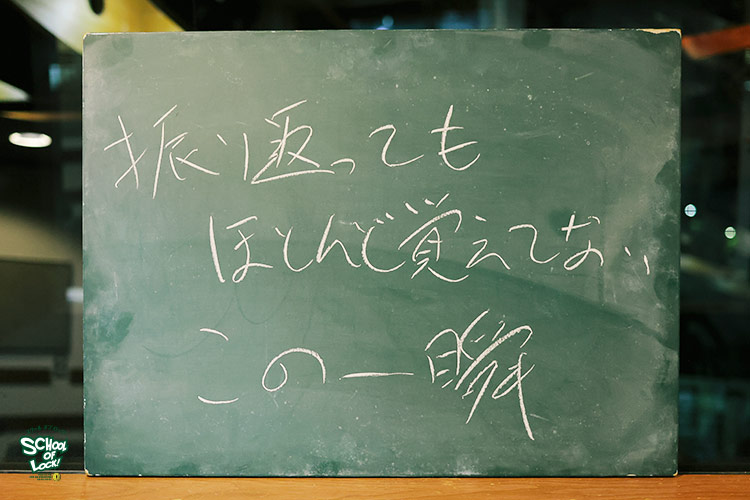 振り返っても
ほとんど覚えてない
この一瞬
SCHOOL
OF
LOCK!